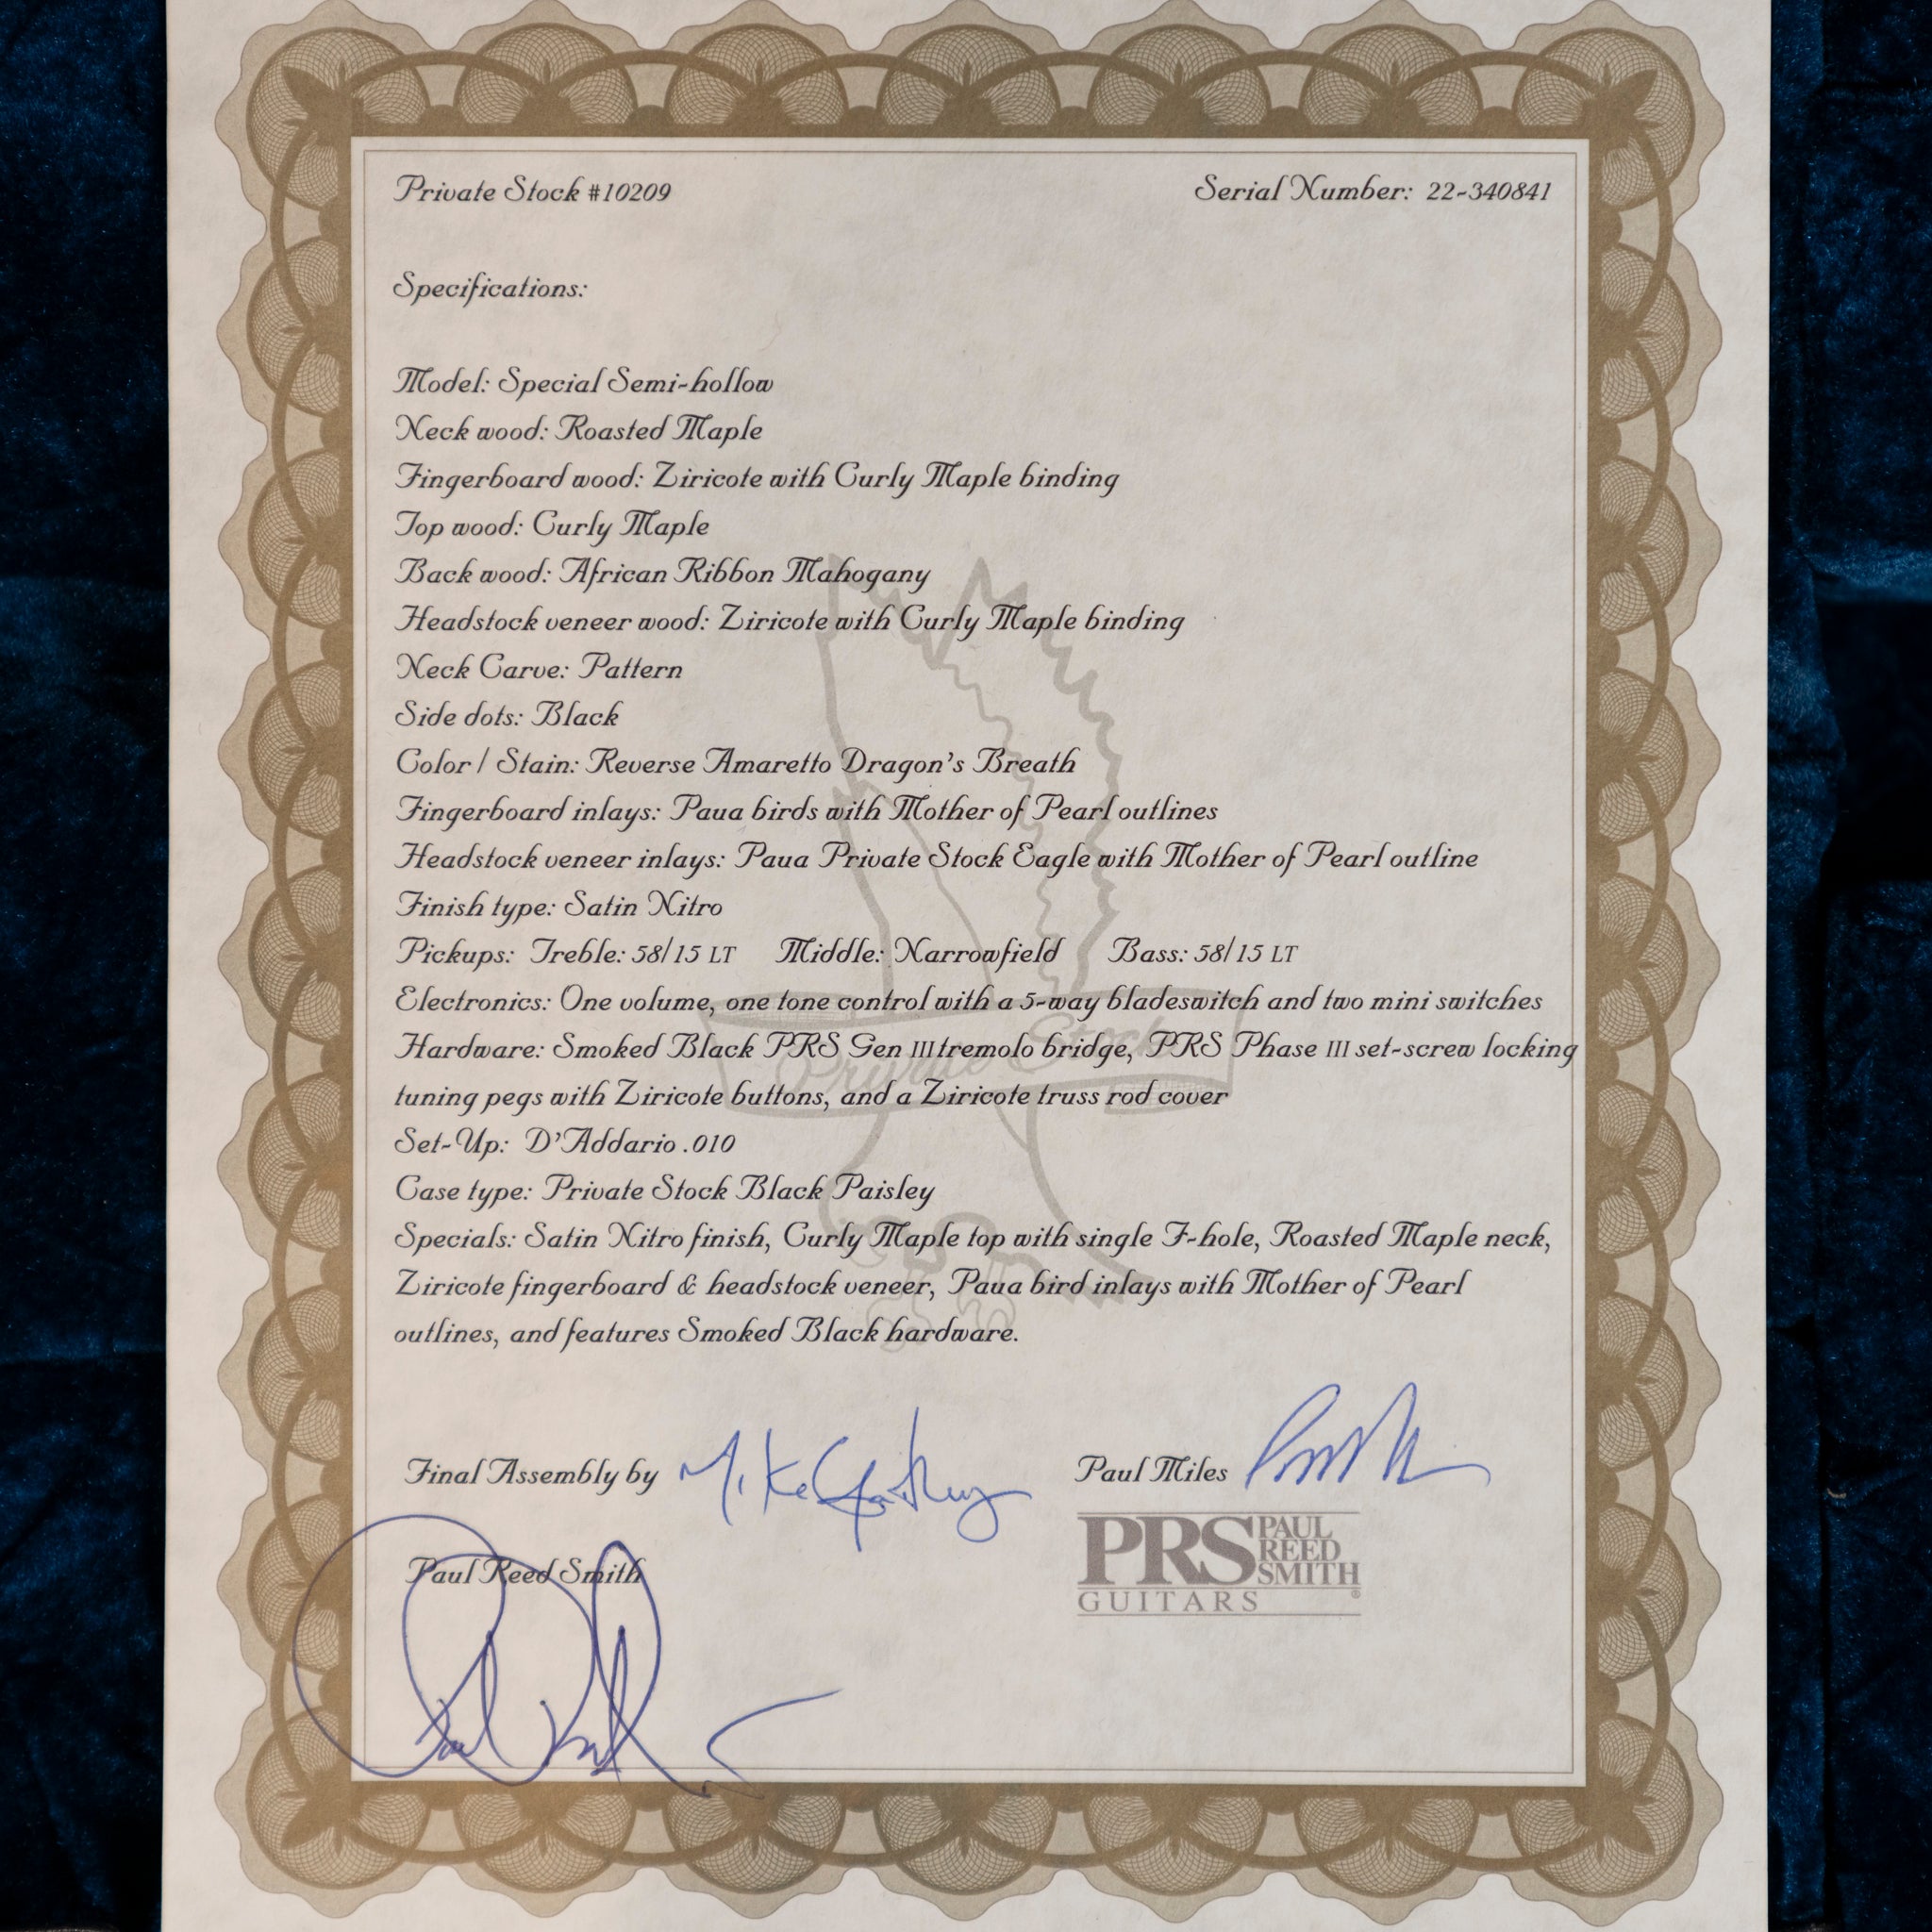 Private Stock #10209 Serial Number: 22-340841
Specifications:
Model: Special Semi-hollow
Neck wood: Roasted Maple
Fingerboard wood: Ziricote with Curly Maple binding
Top wood: Curly Maple
Back wood: African Ribbon Mahogany
Headstock veneer wood: Ziricote with Curly Maple binding
Neck Carve: Pattern
Side dots: Black
Color / Stain: Reverse Amaretto Dragon's Breath
Fingerboard inlays: Paua birds with Mother of Pearl outlines
Headstock veneer inlays: Paua Private Stock Eagle with Mother of Pearl outline
Finish type: Satin Nitro
Pickups: Treble: 58/15 LT Middle: Narrowfield Bass: 58/15 LT
Electronics: One volume, one tone control with a 5-way bladeswitch and two mini switches
Hardware: Smoked Black PRS Gen III tremolo bridge, PRS Phase III set-screw locking
tuning pegs with Ziricote buttons, and a Ziricote truss rod cover
Private Stock
Set-Up: D'Addario .010
Case type: Private Stock Black Paisley
Specials: Satin Nitro finish, Curly Maple top with single F-hole, Roasted Maple neck,
Ziricote fingerboard & headstock veneer, Paua bird inlays with Mother of Pearl
outlines, and features Smoked Black hardware.
Final Assembly by Mike Paul Miles
Paul Reed Smith
PRS PAUL
REED
SMITH
GUITARS ®